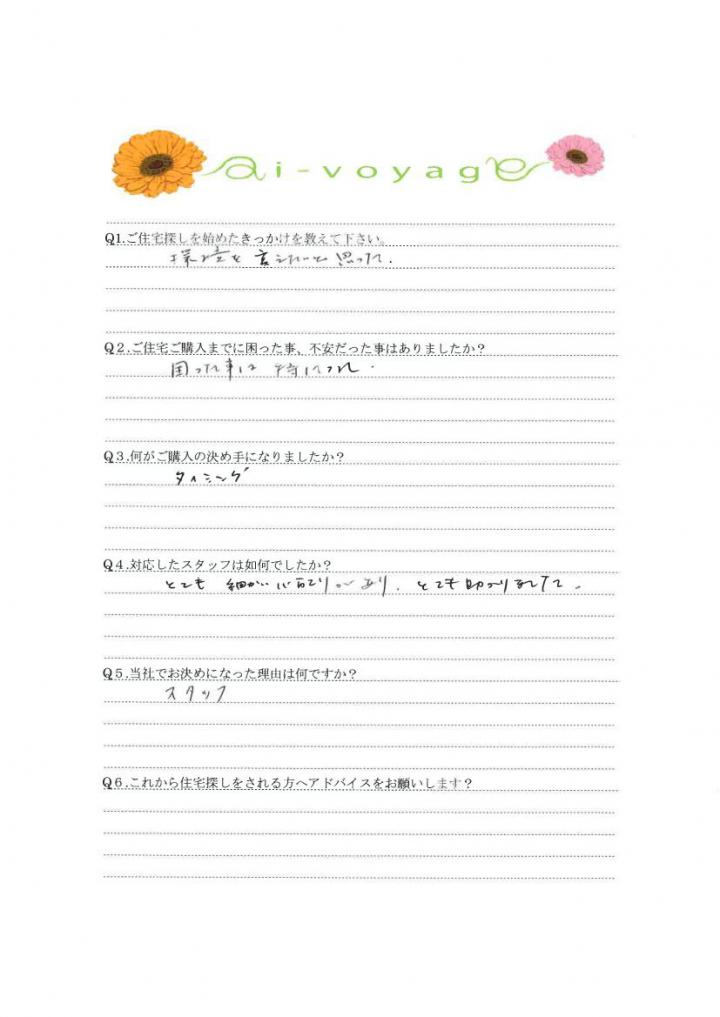 ai-voyage
Q1.ご住宅探しを始めたきっかけを教えて下さい。
環境を変えたいと思った.
Q２.ご住宅ご購入までに困った事、不安だった事はありましたか？
困った事は 特になし.
Q３.何がご購入の決め手になりましたか？
タイミング
Q４.対応したスタッフは如何でしたか？
とても 細かい心配りがあり. とても助かりました.
Q５.当社でお決めになった理由は何ですか？
スタッフ
Q６.これから住宅探しをされる方へアドバイスをお願いします？